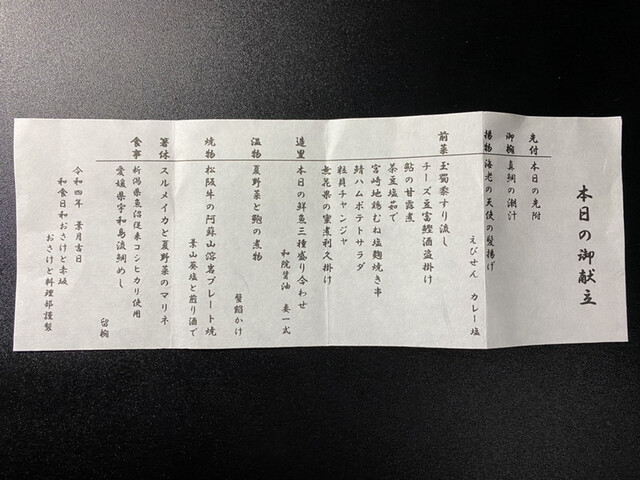 本日の御献立
先付 本日の先附
御椀 真鯛の潮汁
揚物 海老の天使の髪揚げ
えびせん カレー塩
前菜 玉蜀黍すり流し
チーズ豆富鰹酒盗掛け
鮎の甘露煮
茶豆塩茹で
宮崎地鶏むね塩麹焼き串
鯖ハムポテトサラダ
粒貝チャンジャ
無花果の蜜煮利久掛け
造里 本日の鮮魚三種盛り合わせ
和院醤油 妻一式
温物 夏野菜と鮑の煮物
蟹餡かけ
焼物 松阪牛の阿蘇山溶岩プレート焼
葉山葵塩と煎り酒で
箸休 スルメイカと夏野菜のマリネ
食事 新潟県魚沼従来コシヒカリ使用
愛媛県宇和島流鯛めし
留椀
令和四年 葉月吉日
和食日和おさけと赤坂
おさけと料理部謹製